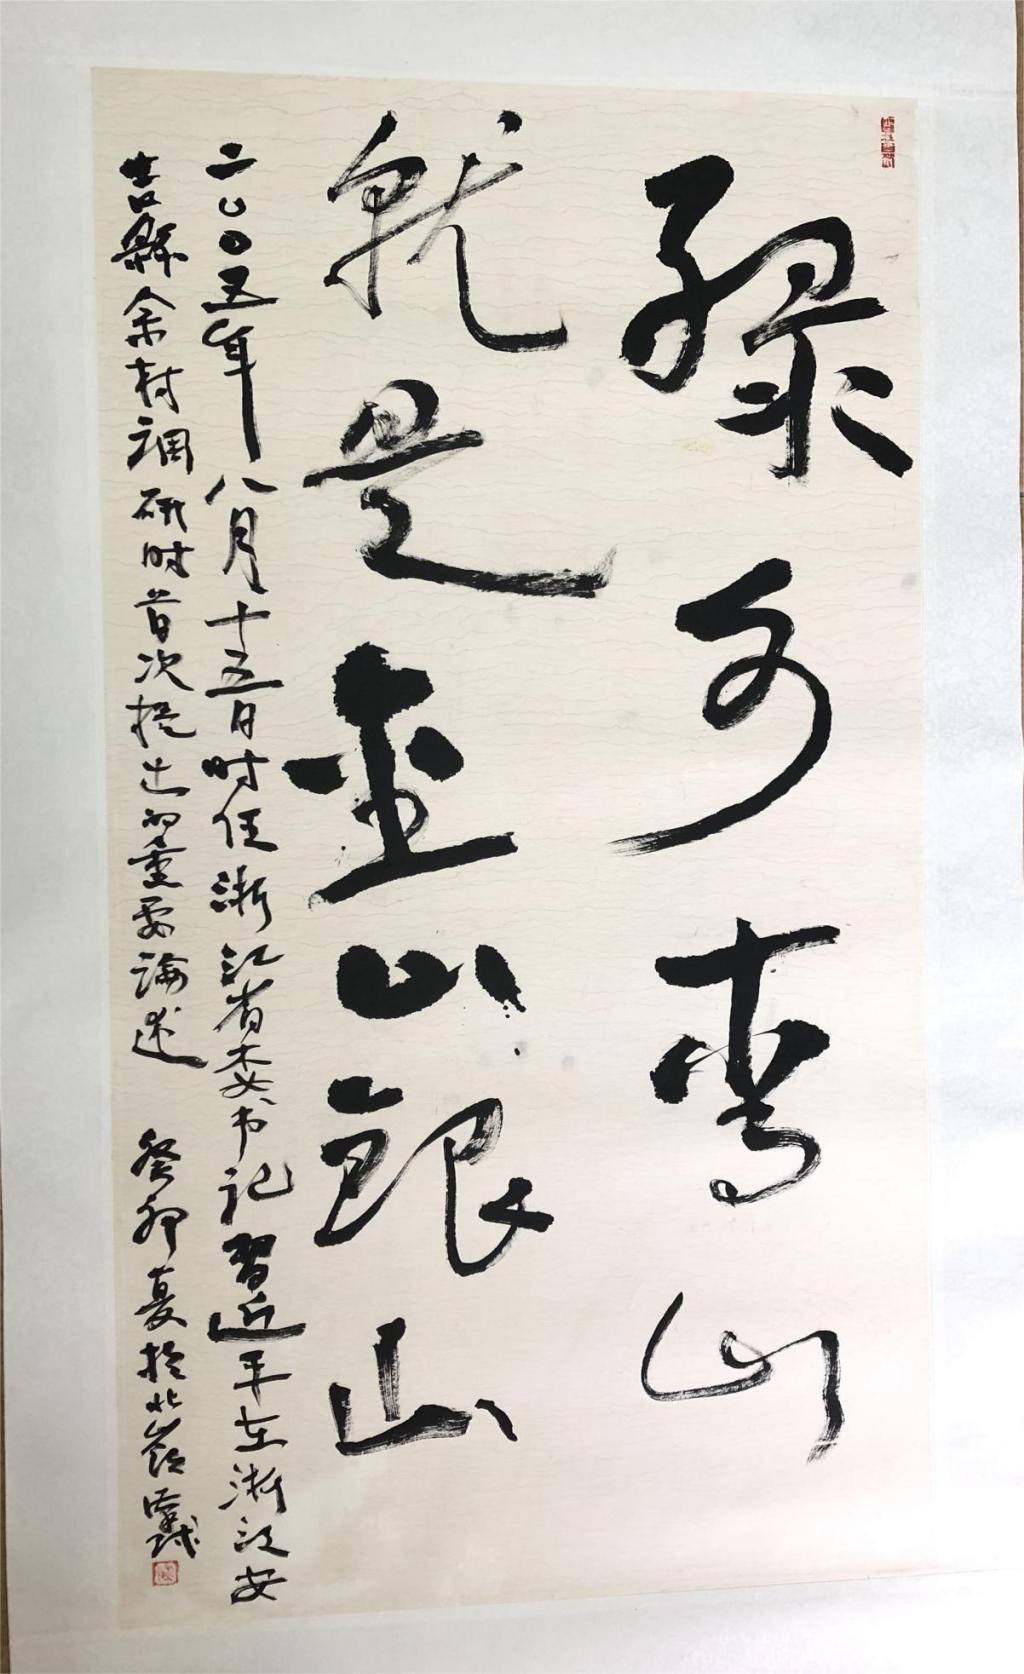 绿水青山
就是金山银山
二〇〇五年八月十五日时任浙江省委书记習近平在浙江安
吉縣余村调研时首次提出的重要論述 癸卯夏於北